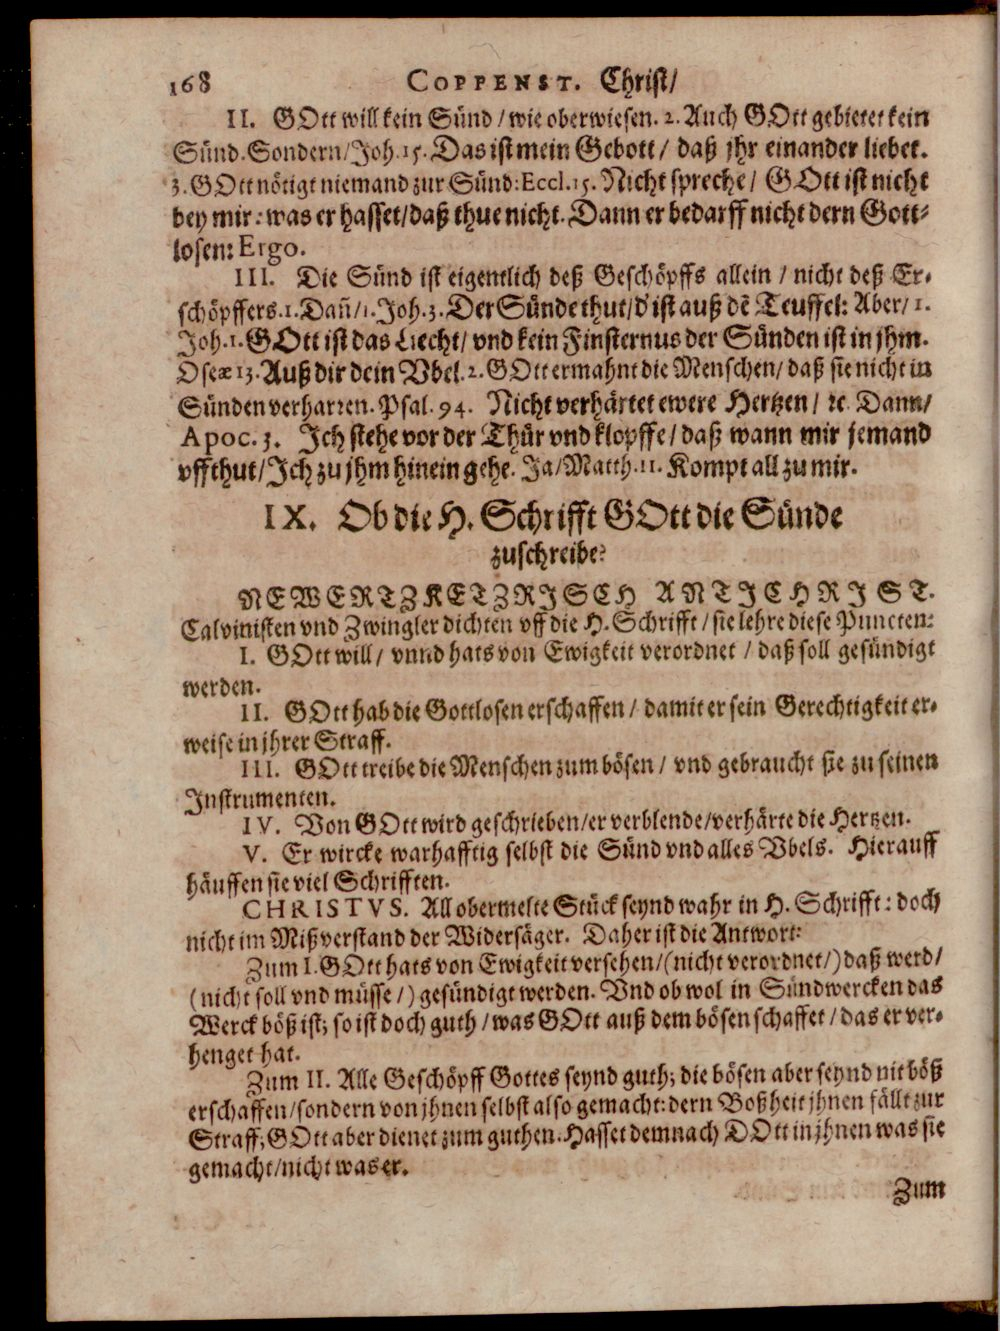 168 COPPENST. Christ/
II. GOtt will kein Sünd / wie oberwiesen. 2. Auch GOtt gebietet kein
Sünd. Sondern/ Joh. 15. Das ist mein Gebott / daß jhr einander liebet.
3. GOtt nötigt niemand zur Sünd: Eccl. 15. Nicht spreche / GOtt ist nicht
bey mir: was er hasset/ daß thue nicht. Dann er bedarff nicht dern Gott-
losen: Ergo.
III. Die Sünd ist eigentlich deß Geschöpffs allein / nicht deß Er-
schöpffers. 1. Dañ/ 1. Joh. 3. Der Sünde thut/ d' ist auß dẽ Teuffel: Aber/ 1.
Joh. 1. GOtt ist das Liecht/ vnd kein Finsternus der Sünden ist in jhm.
Oseæ 13. Auß dir dein Vbel. 2. GOtt ermahnt die Menschen/ daß sie nicht in
Sünden verharren. Psal. 94. Nicht verhärtet ewere Hertzen / ꝛc. Dann/
Apoc. 3. Ich stehe vor der Thür vnd klopffe / daß wann mir jemand
vffthut/ Ich zu jhm hinein gehe. Ja/ Matth. 11. Kompt all zu mir.
IX. Ob die H. Schrifft GOtt die Sünde
zuschreibe?
NEWERTZKETZRISCH ANTICHRIST.
Calvinisten vnd Zwingler dichten vff die H. Schrifft / sie lehre diese Puncten:
I. GOtt will / vnnd hats von Ewigkeit verordnet / daß soll gesündigt
werden.
II. GOtt hab die Gottlosen erschaffen / damit er sein Gerechtigkeit er-
weise in jhrer Straff.
III. GOtt treibe die Menschen zum bösen / vnd gebraucht sie zu seinen
Instrumenten.
IV. Von GOtt wird geschrieben/ er verblende/ verhärte die Hertzen.
V. Er wircke warhafftig selbst die Sünd vnd alles Vbels. Hierauff
häuffen sie viel Schrifften.
CHRISTVS. All obermelte Stück seynd wahr in H. Schrifft: doch
nicht im Mißverstand der Widersäger. Daher ist die Antwort:
Zum I. GOtt hats von Ewigkeit versehen/ (nicht verordnet/) daß werd/
(nicht soll vnd müsse /) gesündigt werden. Vnd ob wol in Sündwercken das
Werck böß ist; so ist doch guth / was GOtt auß dem bösen schaffet / das er ver-
henget hat.
Zum II. Alle Geschöpff Gottes seynd guth; die bösen aber seynd nit böß
erschaffen/ sondern von jhnen selbst also gemacht: dern Boßheit jhnen fällt zur
Straff; GOtt aber dienet zum guthen. Hasset demnach GOtt in jhnen was sie
gemacht/ nicht was er.
Zum